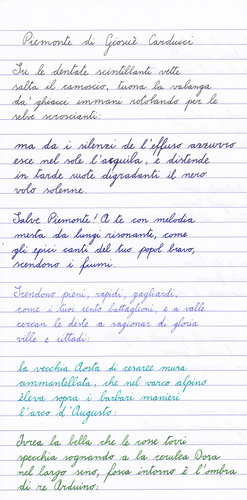 Piemonte di Giosuè Carducci
Su le dentate scintillanti vette
salta il camoscio, tuona la valanga
da' ghiacci immani rotolando per le
selve scroscianti:
ma da i silenzi de l'effuso azzurro
esce nel sole l'aquila, e distende
in tarde ruote digradanti il nero
volo solenne.
Salve Piemonte! A te con melodia
mesta da lungi risonante, come
gli epici canti del tuo popol bravo,
scendono i fiumi.
Scendono pieni, rapidi, gagliardi,
come i tuoi cento battaglioni, e a valle
cercan le deste a ragionar di gloria
ville e cittadi:
la vecchia Aosta di cesaree mura
ammantellata, che nel varco alpino
èleva sopra i barbari manieri
l'arco d'Augusto:
Ivrea la bella che le rosse torri
specchia sognando a la cerulea Dora
nel largo seno, fosca intorno è l'ombra
di re Arduino: